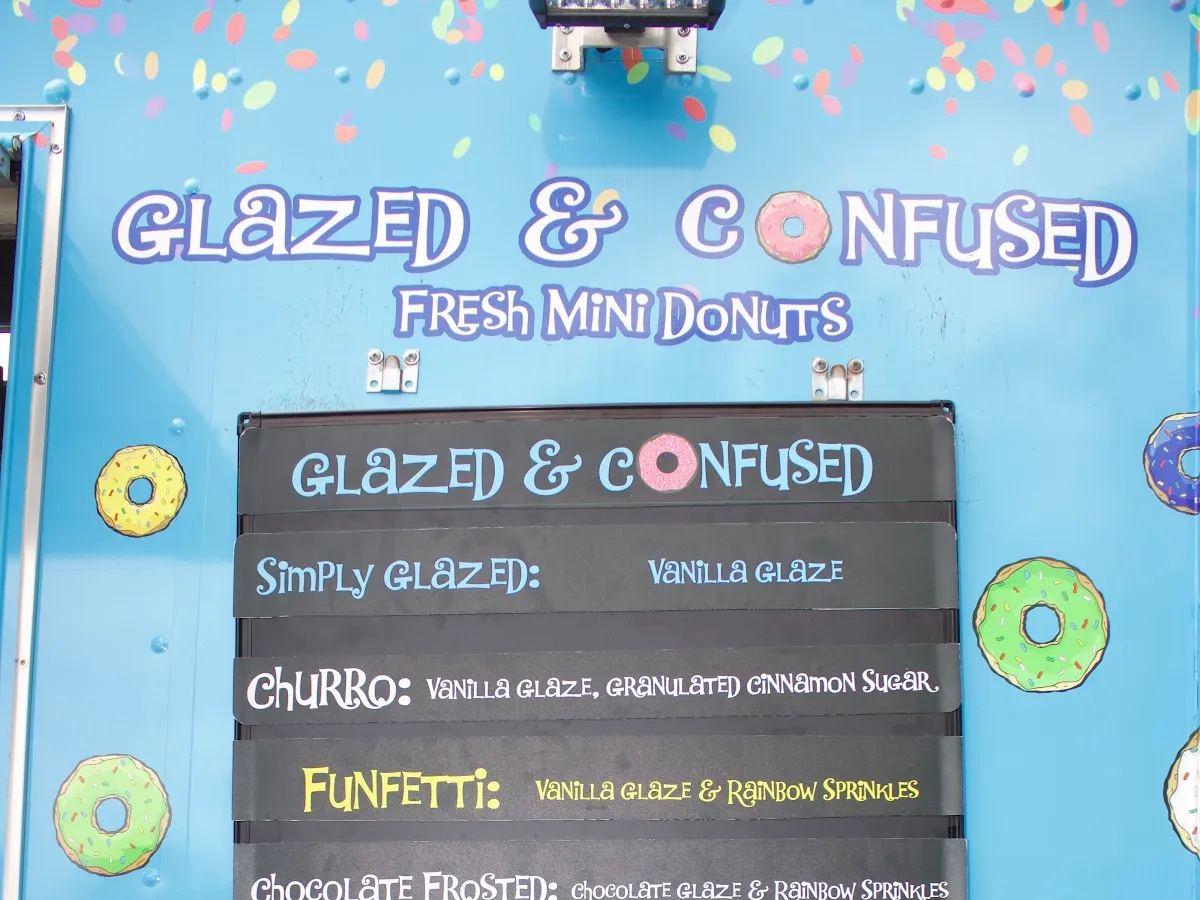 Glazed & Confused
Fresh Mini Donuts
Glazed & Confused
Simply Glazed: Vanilla Glaze
Churro: Vanilla Glaze, Granulated Cinnamon Sugar
Funfetti: Vanilla Glaze & Rainbow Sprinkles
Chocolate Frosted: Chocolate Glaze & Rainbow Sprinkles